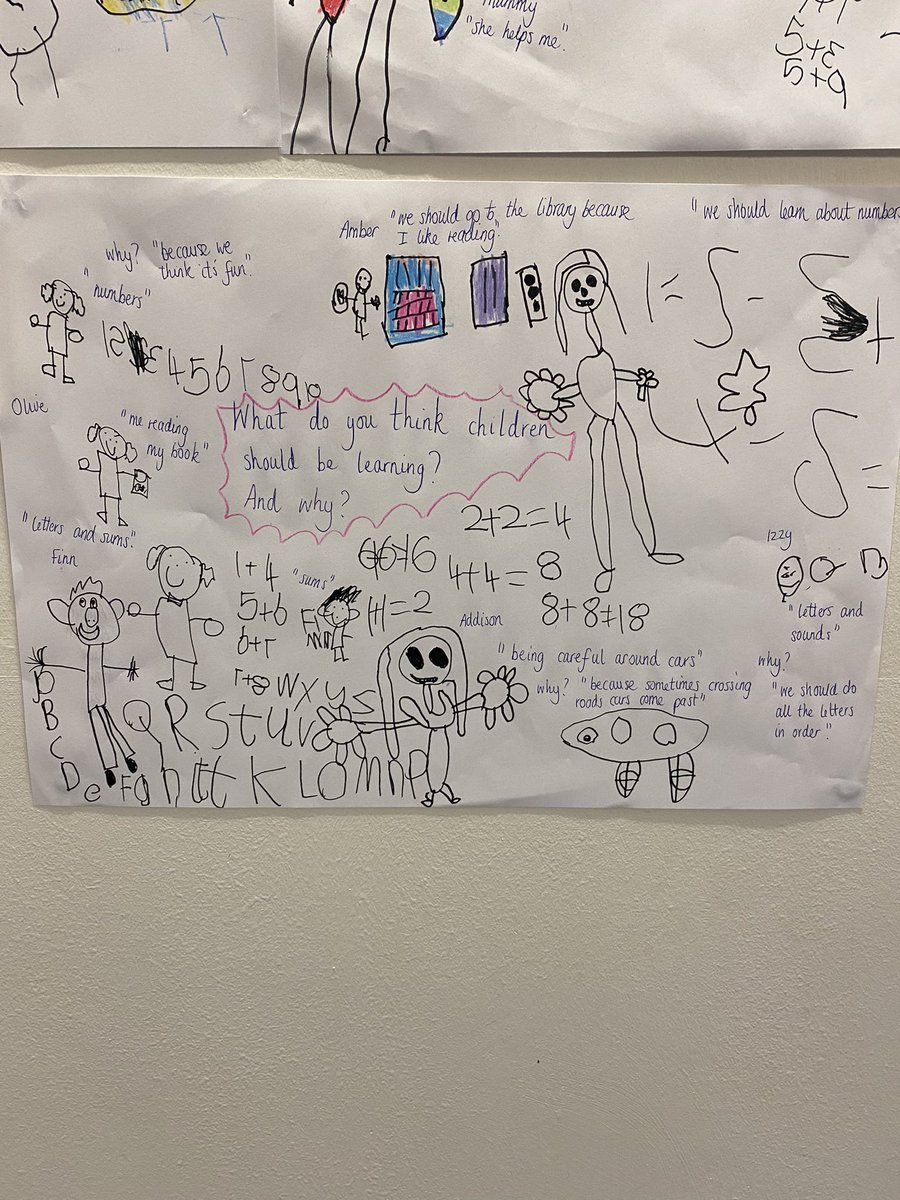 mummy
"she helps me."
5+3
5+9
Amber "we should go to the library because
I like reading".
"we should learn about numbers
why? "because we
think it's fun."
"numbers"
4 5 6 7 8 9 10
Olive
"me reading
my book"
What do you think children
should be learning?
And why?
"letters and sums".
Finn
1+4
5+6
"sums"
2+2=4
4+4=8
8+8=18
11=2
Addison
"being careful around cars"
why? "because sometimes crossing
roads cars come past"
Izzy
"letters and
sounds"
why?
"we should do
all the letters
in order."
Q R S t u v w x y
B
C
D e F g h
K L O M n P